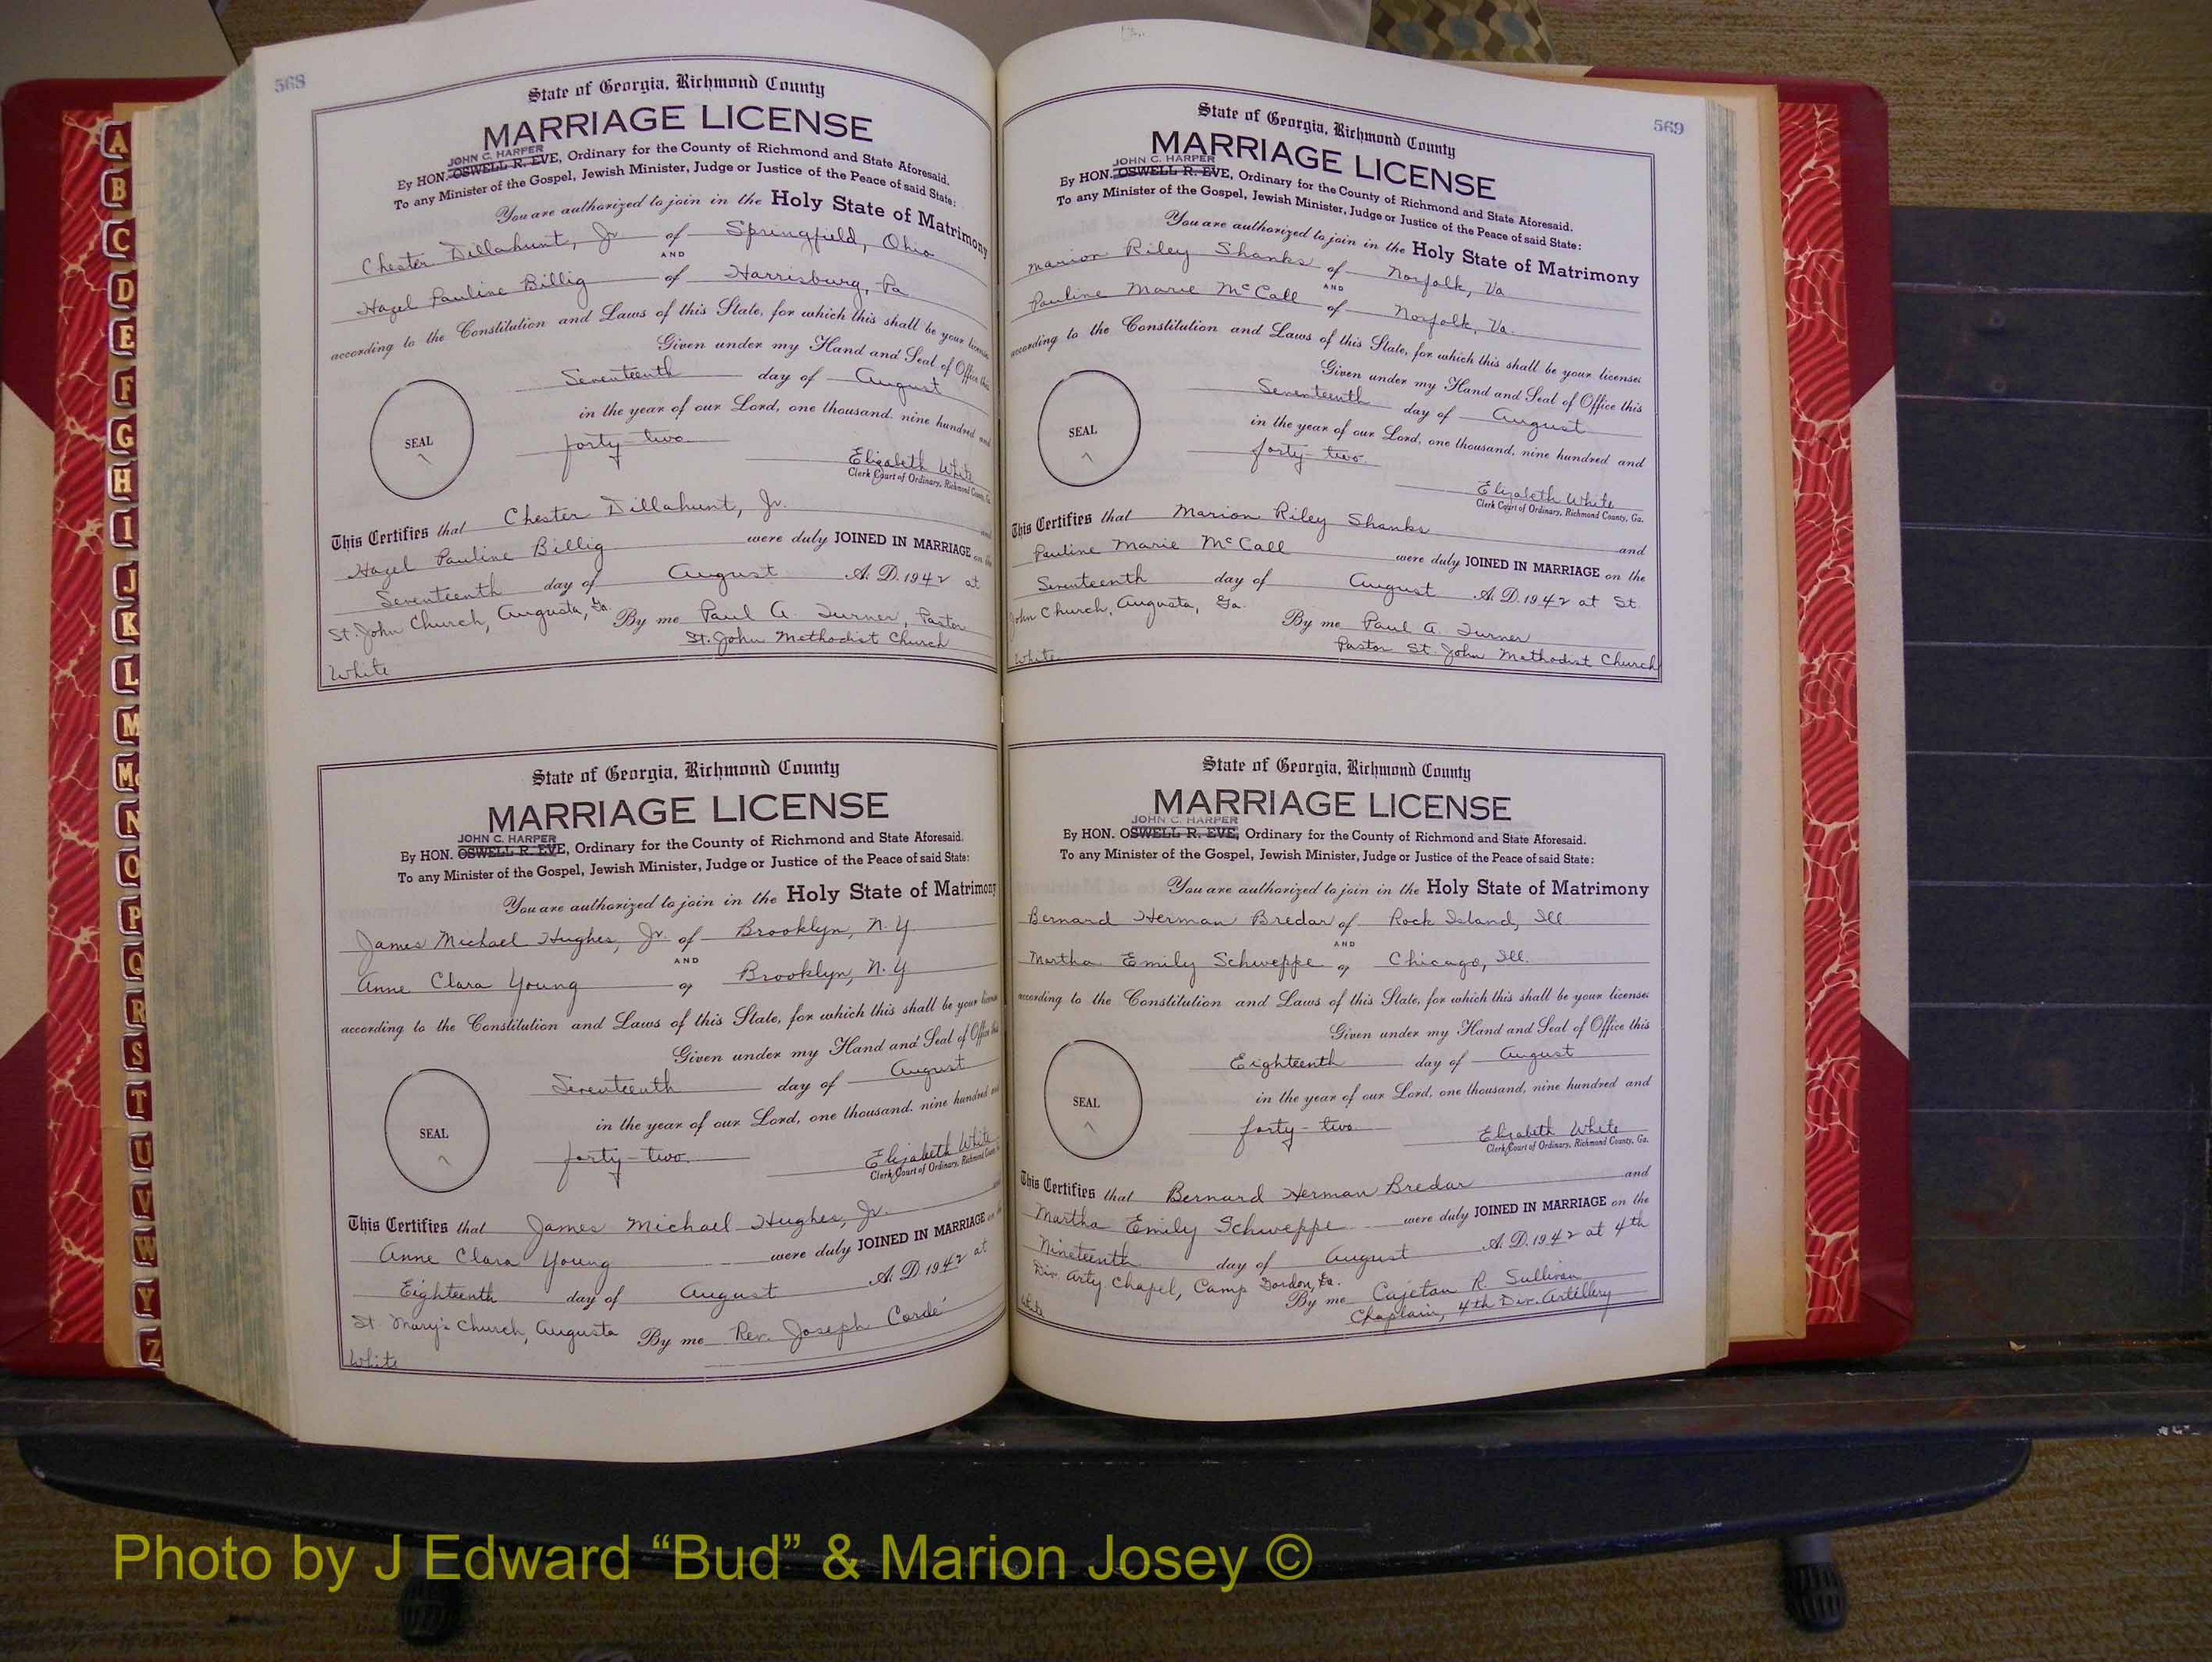 568
State of Georgia, Richmond County
MARRIAGE LICENSE
JOHN C. HARPER
By HON. OSWELL R. EVE, Ordinary for the County of Richmond and State Aforesaid.
To any Minister of the Gospel, Jewish Minister, Judge or Justice of the Peace of said State:
You are authorized to join in the Holy State of Matrimony
Chester Dillahunt, Jr of Springfield, Ohio
AND
Hazel Pauline Billig of Harrisburg, Pa
according to the Constitution and Laws of this State, for which this shall be your license
Given under my Hand and Seal of Office this
Seventeenth day of August
in the year of our Lord, one thousand, nine hundred and
forty-two
SEAL
Elizabeth White
Clerk Court of Ordinary, Richmond County, Ga.
This Certifies that Chester Dillahunt, Jr. and
Hazel Pauline Billig were duly JOINED IN MARRIAGE on the
Seventeenth day of August A. D. 1942 at
St. John Church, Augusta, Ga. By me Paul A. Turner, Pastor
St. John Methodist Church
White
State of Georgia, Richmond County
MARRIAGE LICENSE
JOHN C. HARPER
By HON. OSWELL R. EVE, Ordinary for the County of Richmond and State Aforesaid.
To any Minister of the Gospel, Jewish Minister, Judge or Justice of the Peace of said State:
You are authorized to join in the Holy State of Matrimony
James Michael Hughes, Jr. of Brooklyn, N.Y.
AND
Anne Clara Young of Brooklyn, N.Y
according to the Constitution and Laws of this State, for which this shall be your license
Given under my Hand and Seal of Office this
Seventeenth day of August
in the year of our Lord, one thousand, nine hundred and
forty-two
SEAL
Elizabeth White
Clerk Court of Ordinary, Richmond County
This Certifies that James Michael Hughes, Jr. and
Anne Clara Young were duly JOINED IN MARRIAGE on the
Eighteenth day of August A. D. 1942 at
St. Mary's Church, Augusta By me Rev. Joseph Cordé
White
569
State of Georgia, Richmond County
MARRIAGE LICENSE
JOHN C. HARPER
By HON. OSWELL R. EVE, Ordinary for the County of Richmond and State Aforesaid.
To any Minister of the Gospel, Jewish Minister, Judge or Justice of the Peace of said State:
You are authorized to join in the Holy State of Matrimony
Marion Riley Shanks of Norfolk, Va
AND
Pauline Marie McCall of Norfolk, Va.
according to the Constitution and Laws of this State, for which this shall be your license:
Given under my Hand and Seal of Office this
Seventeenth day of August
in the year of our Lord, one thousand, nine hundred and
forty-two
SEAL
Elizabeth White
Clerk Court of Ordinary, Richmond County, Ga.
This Certifies that Marion Riley Shanks and
Pauline Marie McCall were duly JOINED IN MARRIAGE on the
Seventeenth day of August A. D. 1942 at St.
John Church, Augusta, Ga. By me Paul A. Turner
Pastor St. John Methodist Church
White
State of Georgia, Richmond County
MARRIAGE LICENSE
JOHN C. HARPER
By HON. OSWELL R. EVE, Ordinary for the County of Richmond and State Aforesaid.
To any Minister of the Gospel, Jewish Minister, Judge or Justice of the Peace of said State:
You are authorized to join in the Holy State of Matrimony
Bernard Herman Bredar of Rock Island, Ill
AND
Martha Emily Schweppe of Chicago, Ill.
according to the Constitution and Laws of this State, for which this shall be your license:
Given under my Hand and Seal of Office this
Eighteenth day of August
in the year of our Lord, one thousand, nine hundred and
forty-two
SEAL
Elizabeth White
Clerk Court of Ordinary, Richmond County, Ga.
This Certifies that Bernard Herman Bredar and
Martha Emily Schweppe were duly JOINED IN MARRIAGE on the
Nineteenth day of August A. D. 1942 at 4th
Div. Arty Chapel, Camp Gordon, Ga. By me Cajetan R. Sullivan
Chaplain, 4th Div. Artillery
White
A
B
C
D
E
F
G
H
I
J
K
L
M
Mc
N
O
P
Q
R
S
T
U
V
W
Y
Z
Photo by J Edward “Bud” & Marion Josey ©